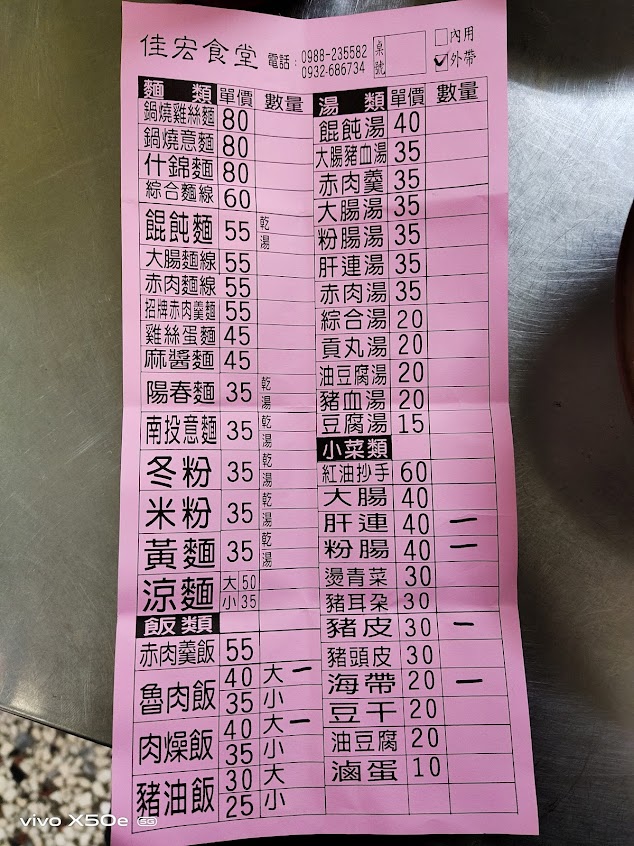 佳宏食堂 電話：0988-235582
0932-686734
桌號
內用
✓外帶
麵類 單價 數量
鍋燒雞絲麵 80
鍋燒意麵 80
什錦麵 80
綜合麵線 60
餛飩麵 55 乾 湯
大腸麵線 55
赤肉麵線 55
招牌赤肉羹麵 55
雞絲蛋麵 45
麻醬麵 45
陽春麵 35 乾 湯
南投意麵 35 乾 湯
冬粉 35 乾 湯
米粉 35 乾 湯
黃麵 35 乾 湯
涼麵 大 50 小 35
飯類
赤肉羹飯 55
魯肉飯 40 大 一
35 小
肉燥飯 40 大 一
35 小
豬油飯 30 大
25 小
湯類 單價 數量
餛飩湯 40
大腸豬血湯 35
赤肉羹 35
大腸湯 35
粉腸湯 35
肝連湯 35
赤肉湯 35
綜合湯 20
貢丸湯 20
油豆腐湯 20
豬血湯 20
豆腐湯 15
小菜類
紅油抄手 60
大腸 40
肝連 40 一
粉腸 40 一
燙青菜 30
豬耳朵 30
豬皮 30 一
豬頭皮 30
海帶 20 一
豆干 20
油豆腐 20
滷蛋 10
vivo X50e 5G